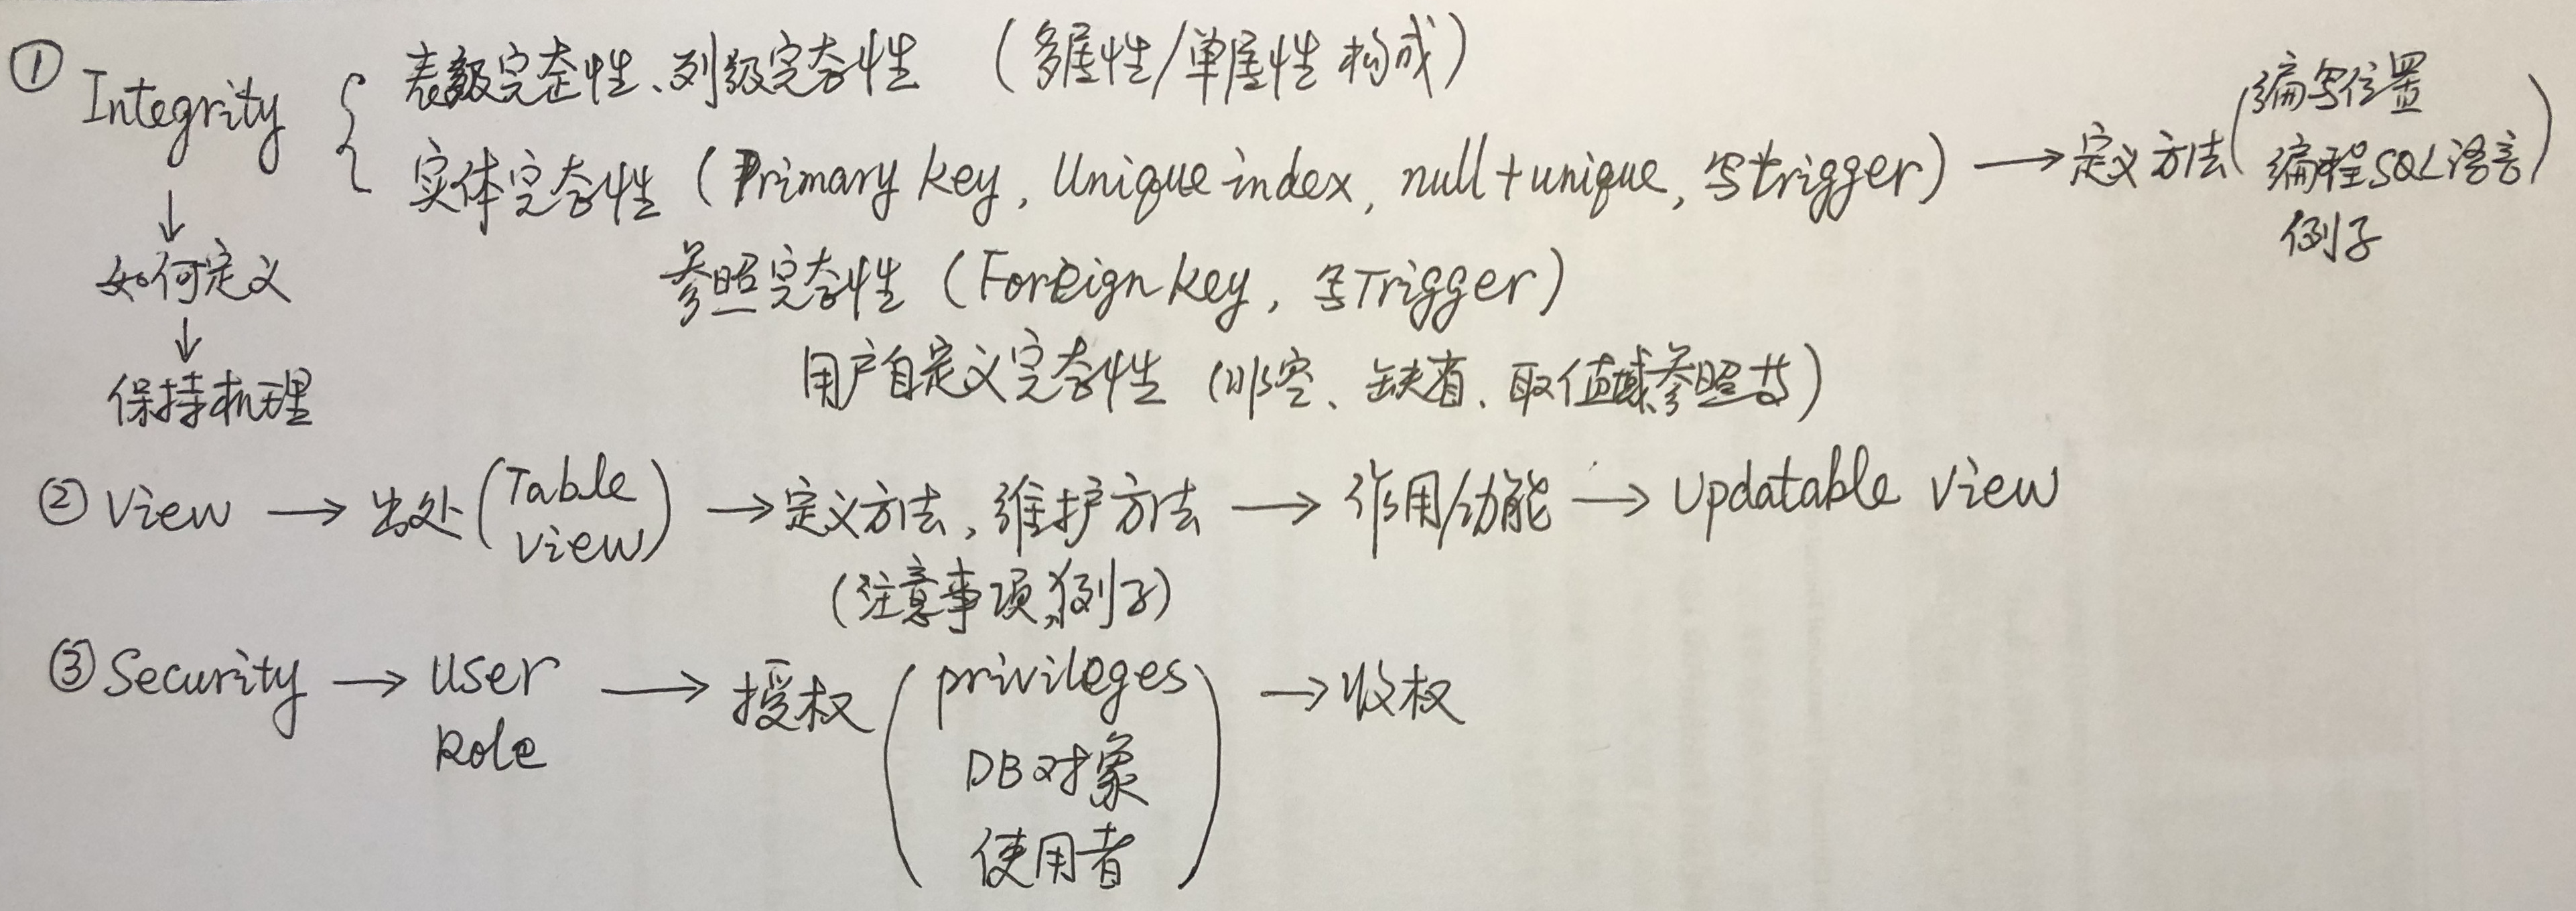 ① Integrity { 表级完整性、列级完整性 (多属性/单属性 构成)
实体完整性 (Primary key, Unique index, null + unique, 写trigger) → 定义方法 (编写位置
编程SQL语言)
例子
↓
如何定义
参照完整性 (Foreign key, 写Trigger)
↓
保持机理
用户自定义完整性 (非空、缺省、取值域参照等)
② View → 出处 (Table
View) → 定义方法, 维护方法 → 作用/功能 → Updatable View
(注意事项, 例子)
③ Security → User
Role → 授权 (privileges
DB对象
使用者) → 收权